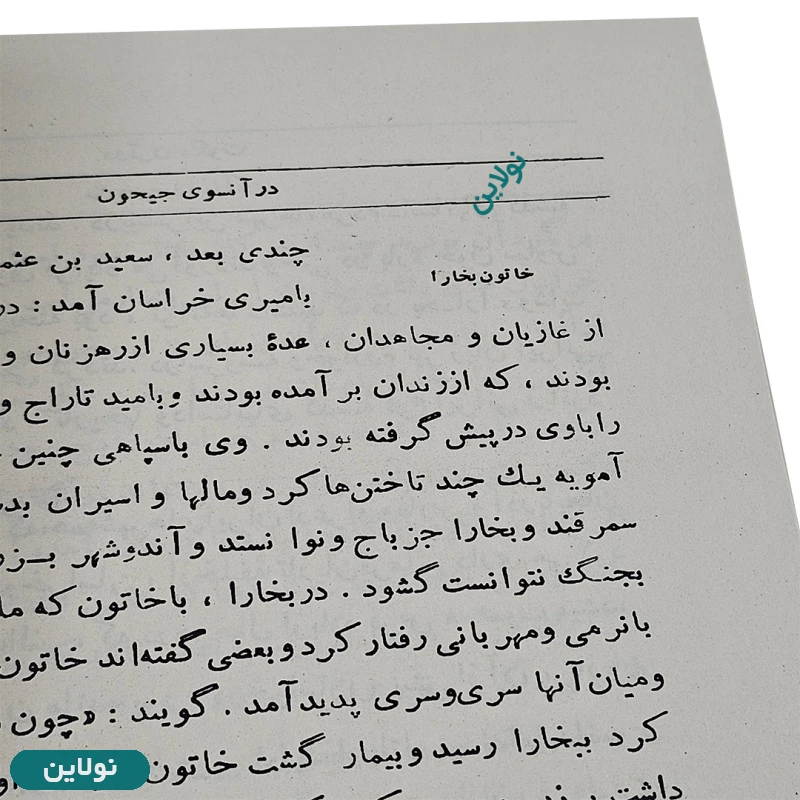 در آنسوی جیحون
نولاین
خاتون بخارا
چندی بعد ، سعید بن عثما
بامیری خراسان آمد : در
از غازیان و مجاهدان ، عدهٔ بسیاری از رهزنان و
بودند ، که از زندان بر آمده بودند و بامید تاراج و
را باوی در پیش گرفته بودند . وی باسپاهی چنین
آمویه یک چند تاختن‌ها کرد و مالها و اسیران بدست
سمرقند و بخارا جز باج و نوا نستد و آندو شهر بزر
بجنگ نتوانست گشود . در بخارا ، با خاتون که مل
با نرمی و مهربانی رفتار کرد و بعضی گفته‌اند خاتون
و میان آنها سری و سری پدید آمد . گویند : «چون
کرد ببخارا رسید و بیمار گشت خاتون
داشت
نولاین